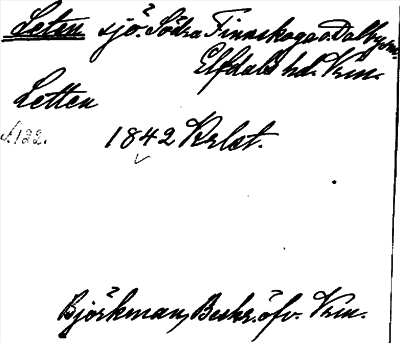 Leten sjö. Södra Finnskoga o. Dalby sn.
Elfdals hd. Vrm.
Letten
s. 122. 1842 Krlst.
Björkman, Beskr. öfv. Vrm.